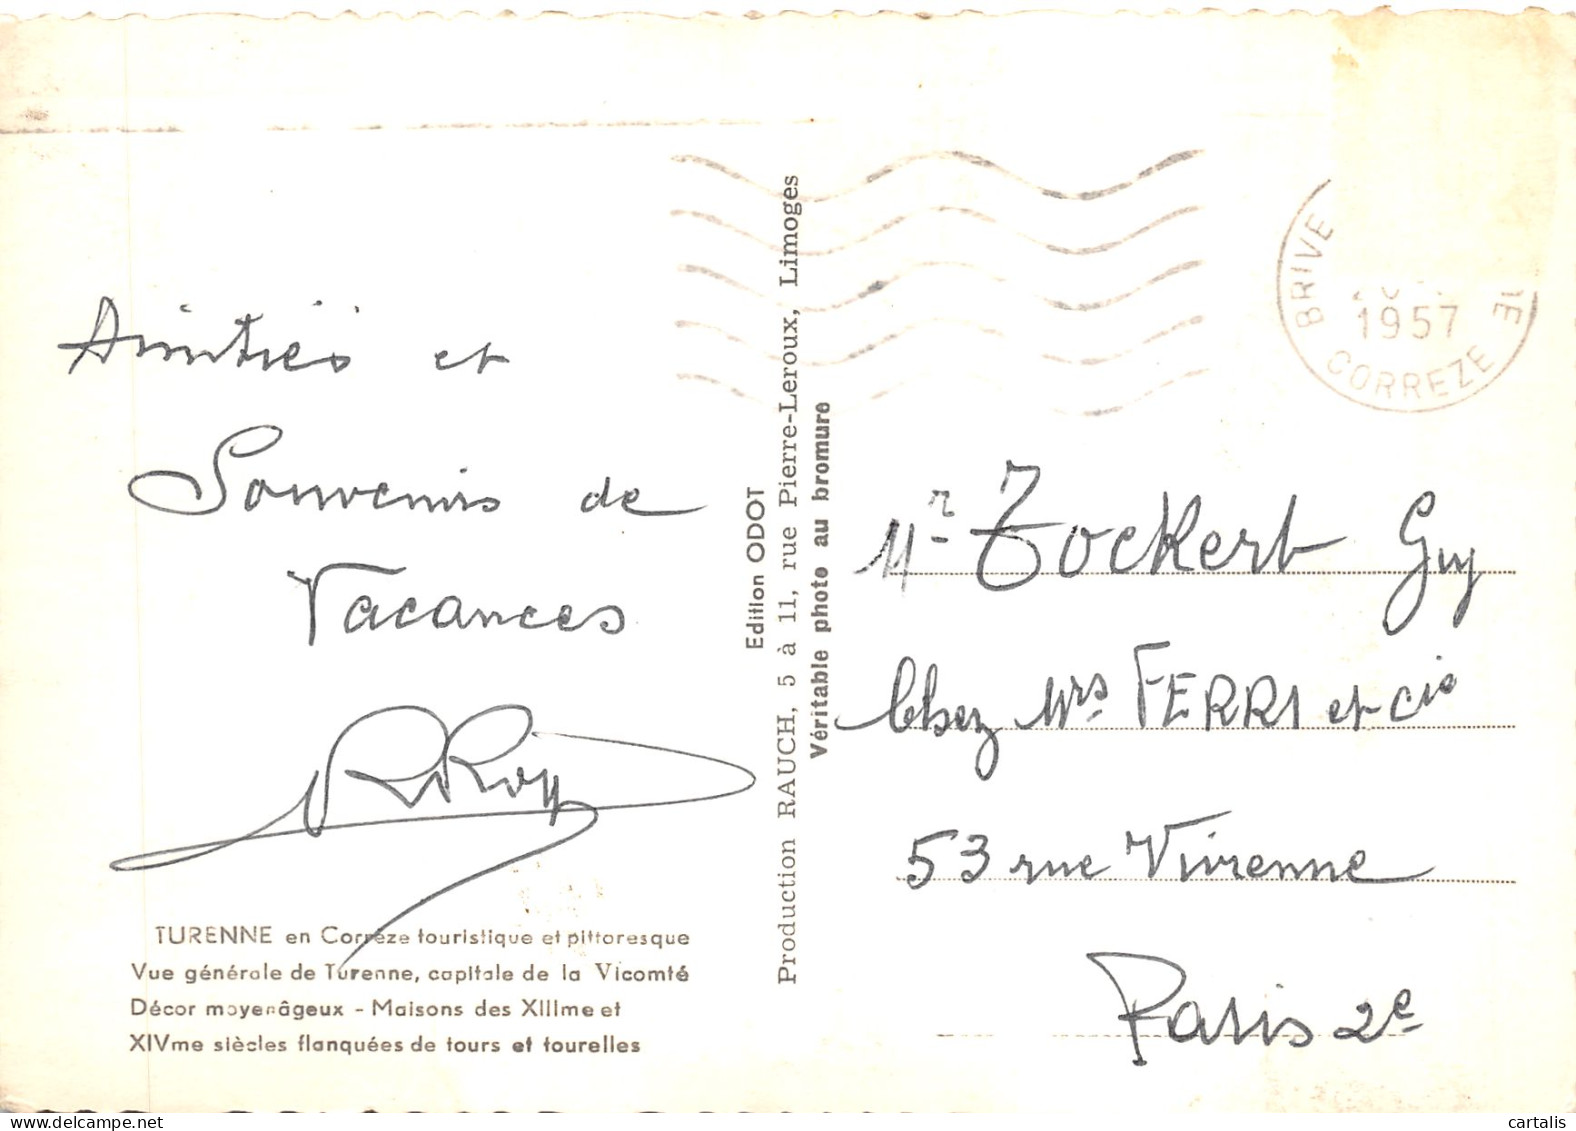 BRIVE
1957
CORREZE
Amitiés et
Souvenirs de
Vacances
Edition ODOT
Production RAUCH, 5 à 11, rue Pierre-Leroux, Limoges
Véritable photo au bromure
Mr Zockert Guy
Chez Mrs FERRI et Cie
53 rue Vivienne
Paris 2e
TURENNE en Corrèze touristique et pittoresque
Vue générale de Turenne, capitale de la Vicomté
Décor moyenâgeux - Maisons des XIIIme et
XIVme siècles flanquées de tours et tourelles
cartalis